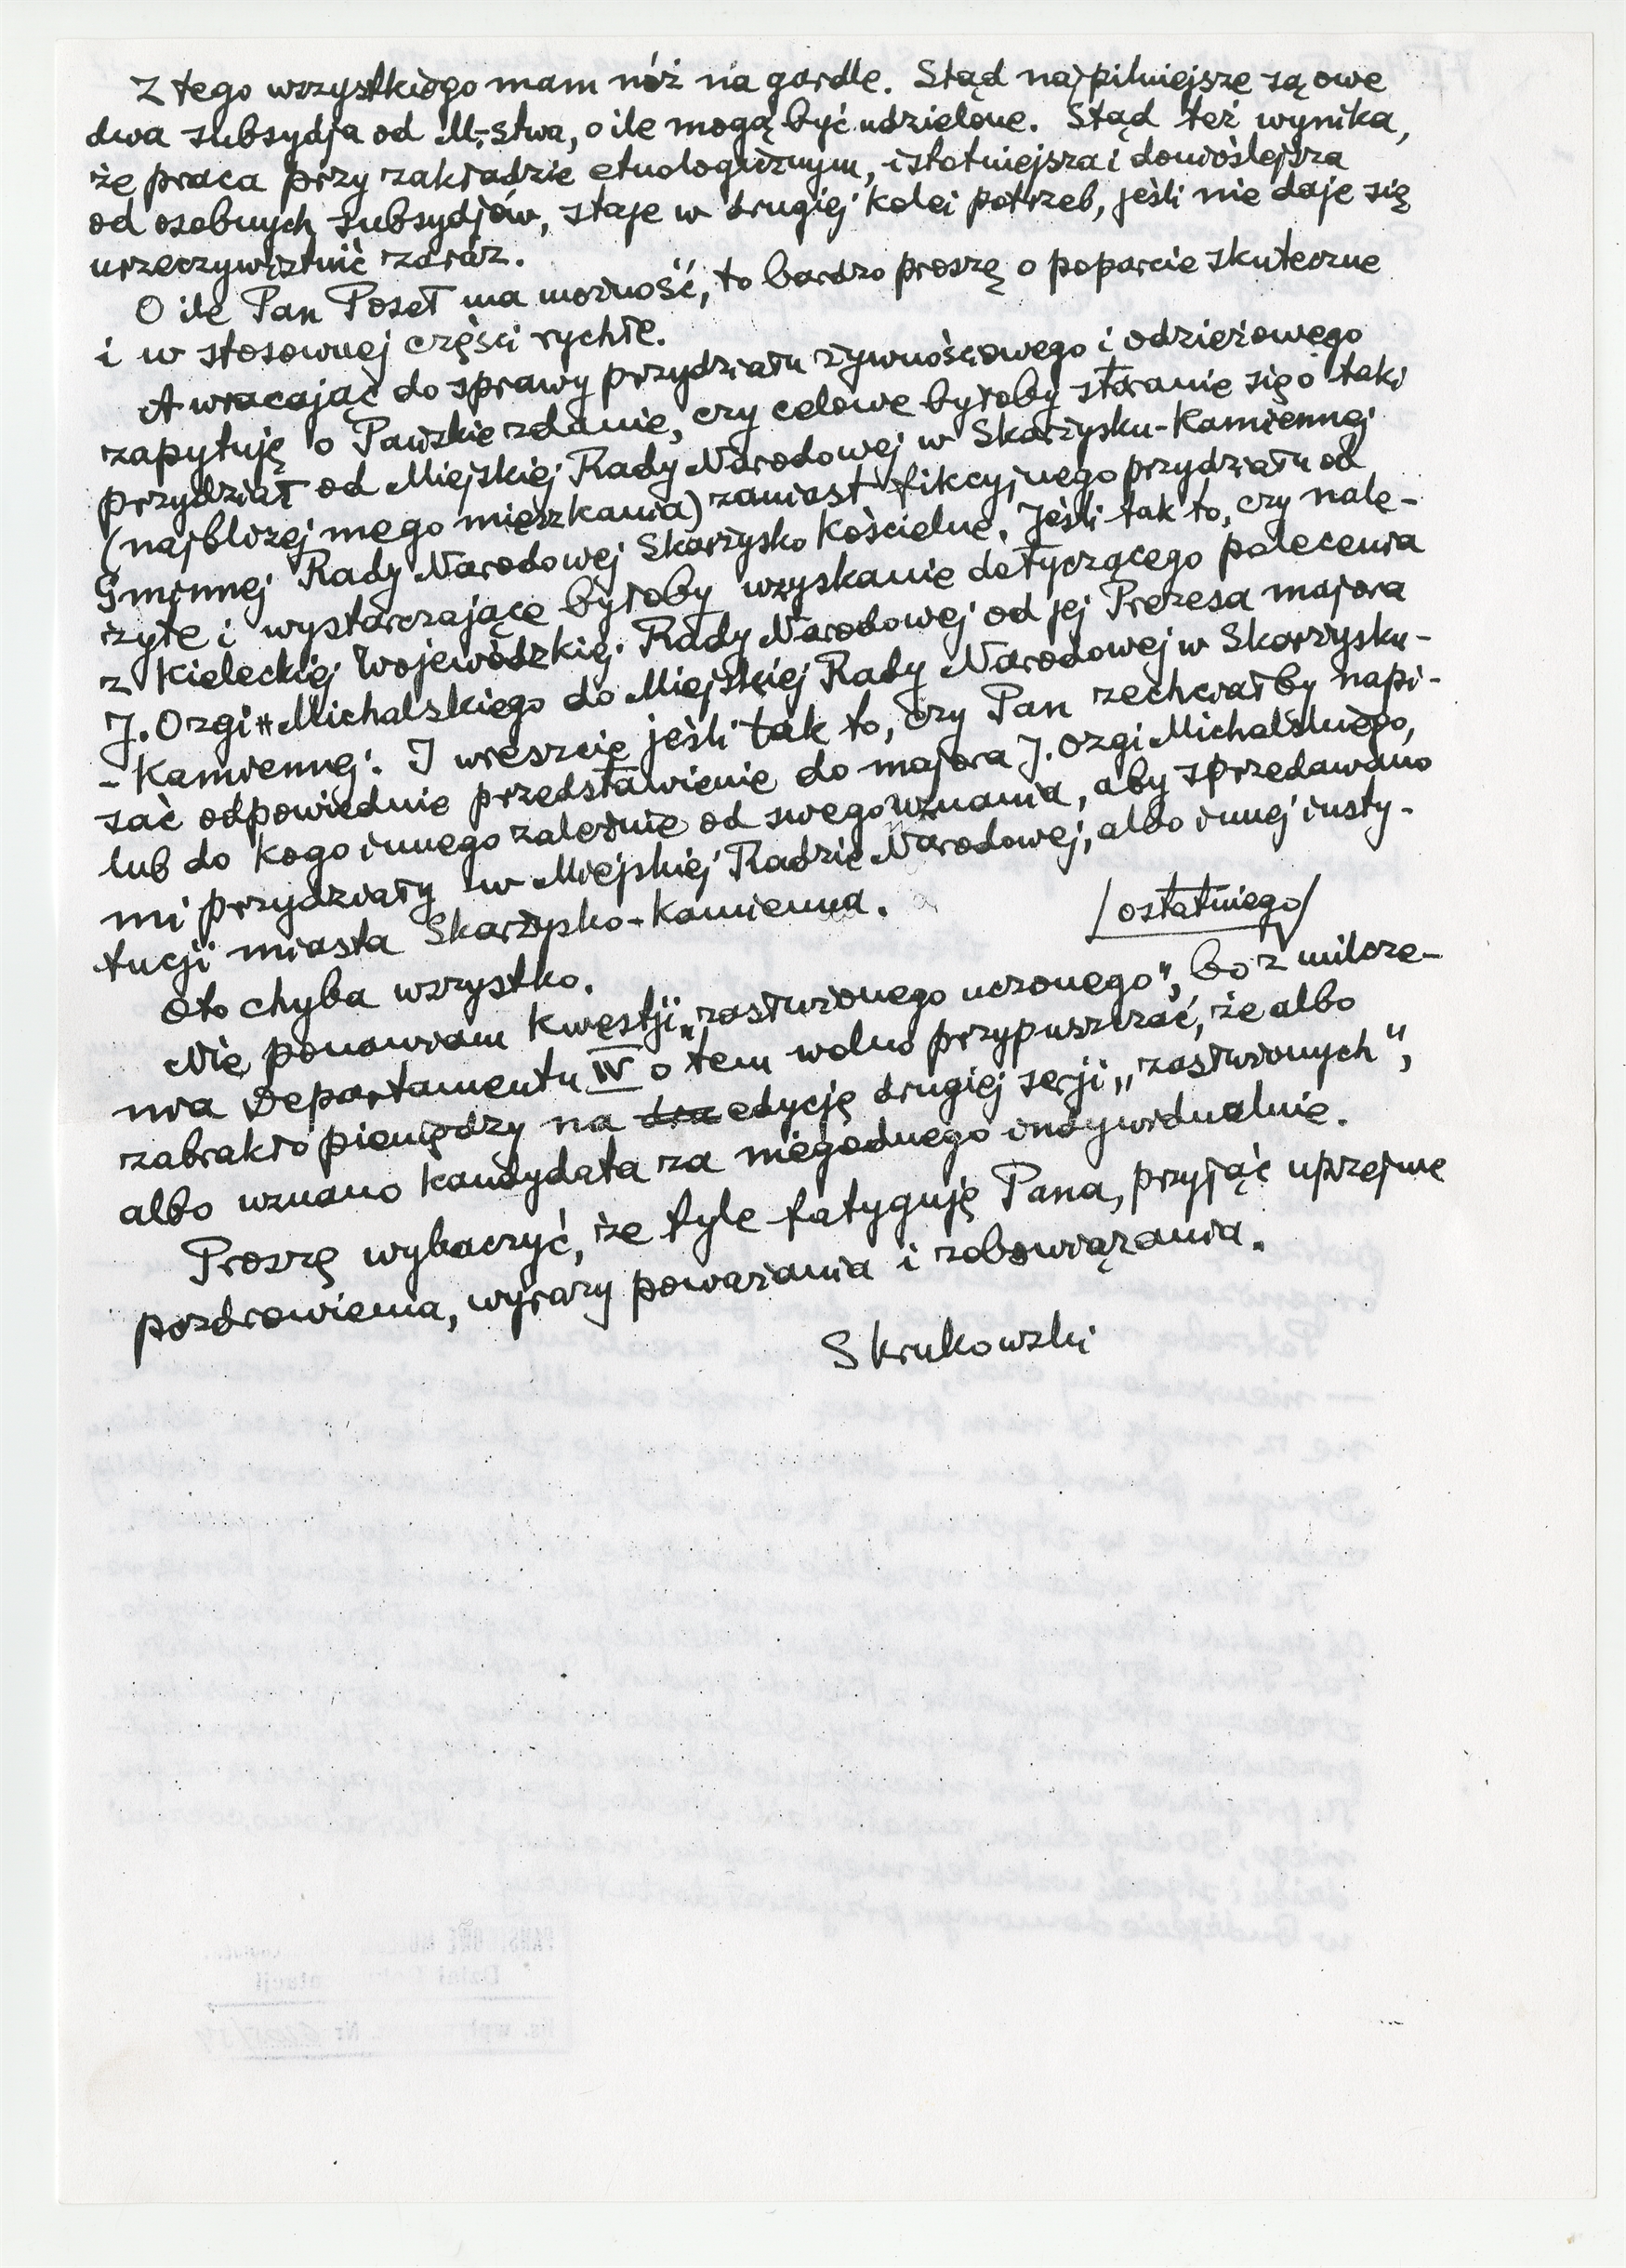 Z tego wszystkiego mam nóż na gardle. Stąd najpilniejsze są owe
dwa subsydja od M-stwa, o ile mogą być udzielone. Stąd też wynika,
że praca przy zakładzie etnologicznym, istotniejsza i donioślejsza
od osobnych subsydjów, staje w drugiej kolei potrzeb, jeśli nie daje się
urzeczywistnić zaraz.
O ile Pan Poseł ma możność, to bardzo proszę o poparcie skuteczne
i w stosownej części rychłe.
A wracając do sprawy przydziału żywnościowego i odzieżowego
zapytuję o Pańskie zdanie, czy celowe byłoby staranie się o taki
przydział od Miejskiej Rady Narodowej w Skarżysku-Kamiennej
(najbliżej mego mieszkania) zamiast fikcyjnego przydziału od
Gminnej Rady Narodowej Skarżysko Kościelne. Jeśli tak to, czy nale-
żyte i wystarczające byłoby uzyskanie dotyczącego polecenia
z Kieleckiej Wojewódzkiej Rady Narodowej od jej Prezesa majora
J. Ozgi-Michalskiego do Miejskiej Rady Narodowej w Skarżysku-
-Kamiennej. I wreszcie jeśli tak to, czy Pan zechciałby napi-
sać odpowiednie przedstawienie do majora J. Ozgi Michalskiego,
lub do kogo innego zależnie od swego uznania, aby sprzedawano
mi przydziały w Miejskiej Radzie Narodowej, albo innej insty-
tucji miasta Skarżysko-Kamienna.
/ostatniego/
Oto chyba wszystko.
Nie ponawiam kwestji „zasłużonego uczonego”, bo z milcze-
nia Departamentu IV o tem wolno przypuszczać, że albo
zabrakło pieniędzy na dru edycję drugiej serji „zasłużonych”,
albo uznano kandydata za niegodnego indywidualnie.
Proszę wybaczyć, że tyle fatyguję Pana, przyjąć uprzejme
pozdrowienia, wyrazy poważania i zobowiązania.
Skrukowski